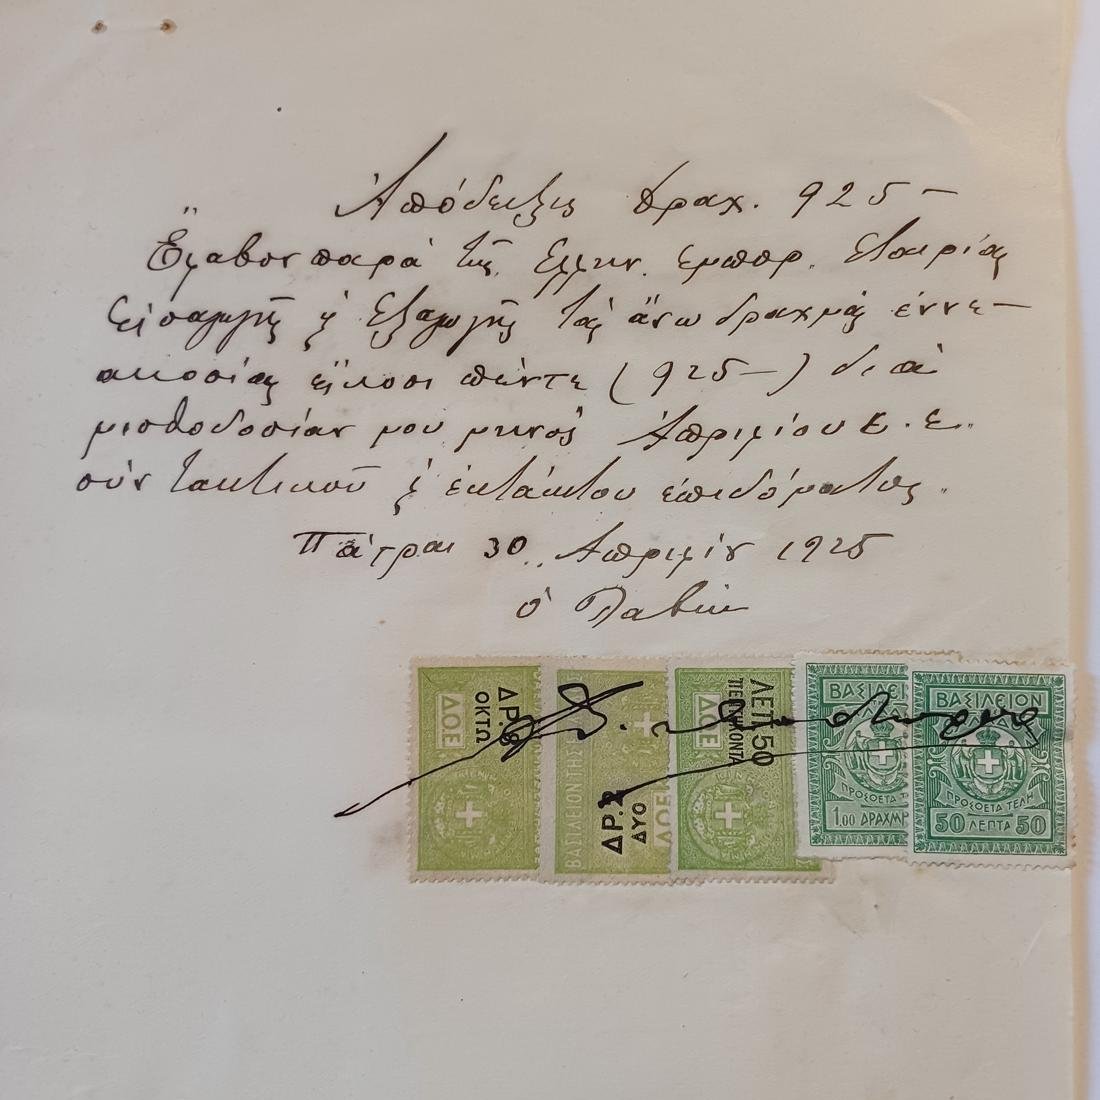 Ἀπόδειξις δραχ. 925 –
Ἔλαβον παρά τῆς Ελλην. εμπορ. Εταιρίας
Εἰσαγωγῆς & Εξαγωγῆς τάς ἄνω δραχμάς ἐννε–
ακοσίας εἴκοσι πέντε (925 –) διά
μισθοδοσίαν μου μηνός Ἀπριλίου ε. ε.
σύν τακτικοῦ & ἐκτάκτου ἐπιδόματος.
Πάτραι 30 Ἀπριλίου 1925
ὁ Λαβών
ΔΡ. 8
ΟΚΤΩ
ΔΟΣ
ΒΑΣΙΛΕΙΟΝ ΤΗΣ
ΔΡ. 2
ΔΥΟ
ΛΕΠ. 50
ΠΕΝΤΗΚΟΝΤΑ
ΔΟΣ
ΒΑΣΙΛΕΙ
ΠΡΟΣΘΕΤΑ
1,00 ΔΡΑΧΜ
ΒΑΣΙΛΕΙΟΝ
ΠΡΟΣΘΕΤΑ ΤΕΛΗ
50 ΛΕΠΤΑ 50